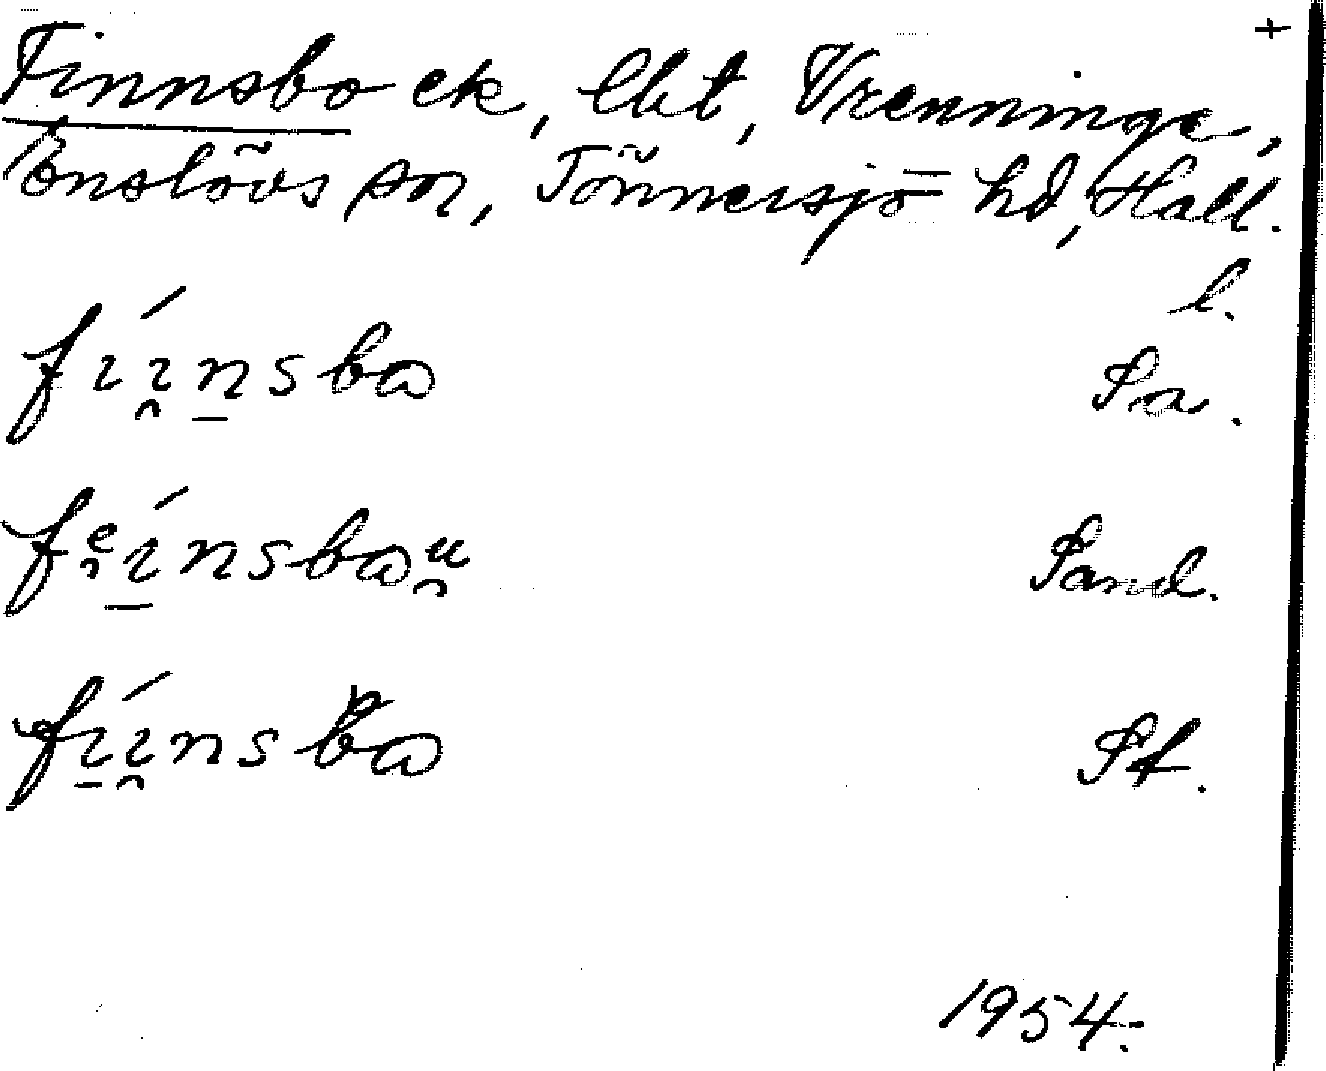 +
Finnsbo ek, lht, Vrenninge,
Enslövs sn, Tönnersjö hd, Hall.
l.
fíɪnsbɷ Sa.
feínsbɷu Sand.
fíɪnsbɷ St.
1954.